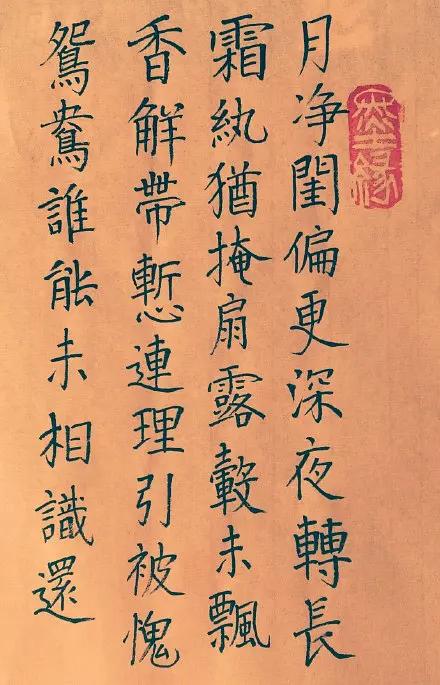 月净閨偏更深夜轉長
霜紈猶掩扇露縠未飄
香觧帶慙連理引被愧
鴛鴦誰能未相識還